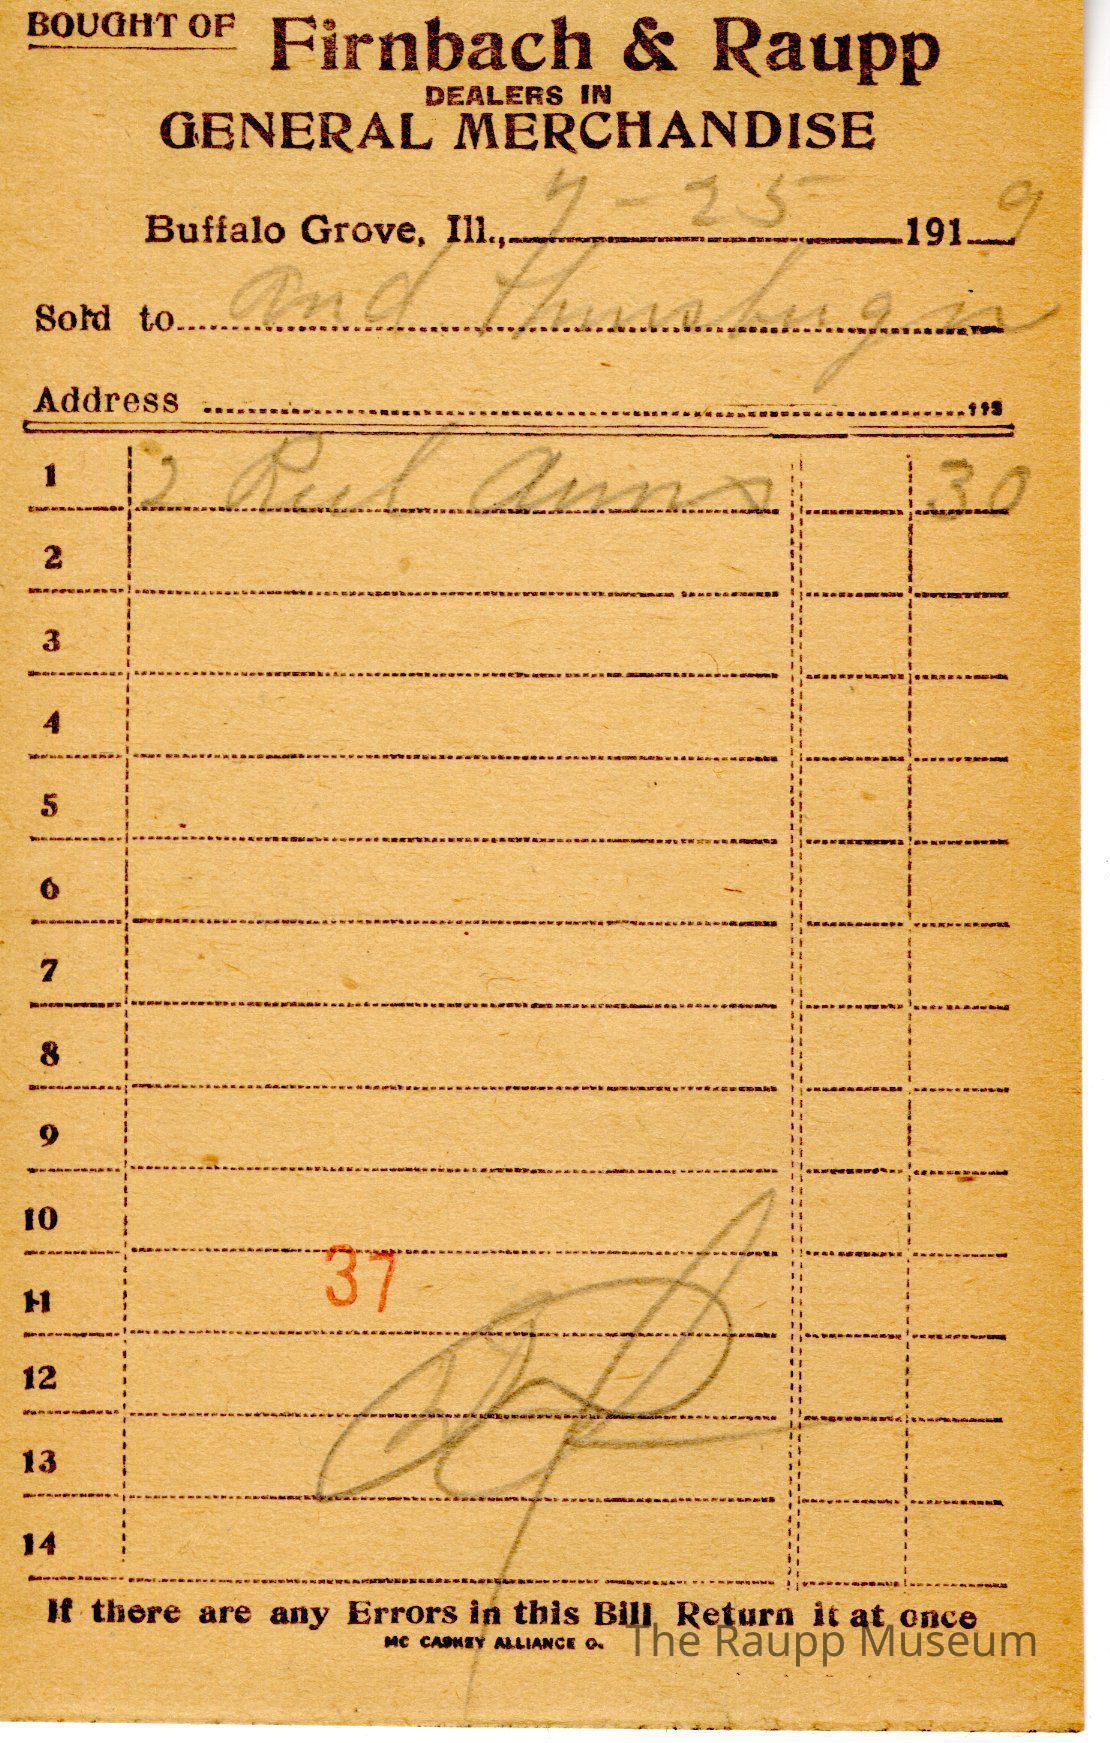 BOUGHT OF Firnbach & Raupp
DEALERS IN
GENERAL MERCHANDISE
Buffalo Grove, Ill., 7-25 1919
Sold to And
Address
1 2 Reel 30
2
3
4
5
6
7
8
9
10
37
11
12
13
14
If there are any Errors in this Bill Return it at once
MC CASKEY ALLIANCE O.
The Raupp Museum